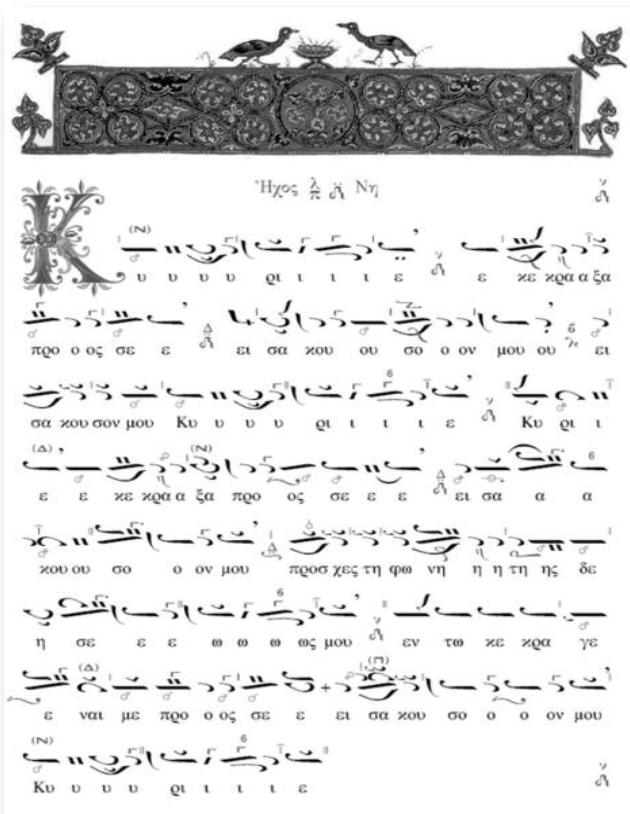 Ἦχος λ π Νη
(Ν)
Κ υ υ υ υ ρι ι ι ι ε ε κε κρα α ξα
προ ο ος σε ε ει σα κου ου σο ο ον μου ου ει
σα κου σον μου Κυ υ υ υ ρι ι ι ι ε Κυ ρι ι
(Δ) (Ν)
ε ε κε κρα α ξα προ ος σε ε ε ει σα α α
κου ου σο ο ον μου προσ χες τη φω νη η η τη ης δε
η σε ε ε ω ω ω ως μου εν τω κε κρα γε
(Δ) (Π)
ε ναι με προ ο ος σε ε ει σα κου σο ο ο ον μου
(Ν)
Κυ υ υ υ ρι ι ι ι ε